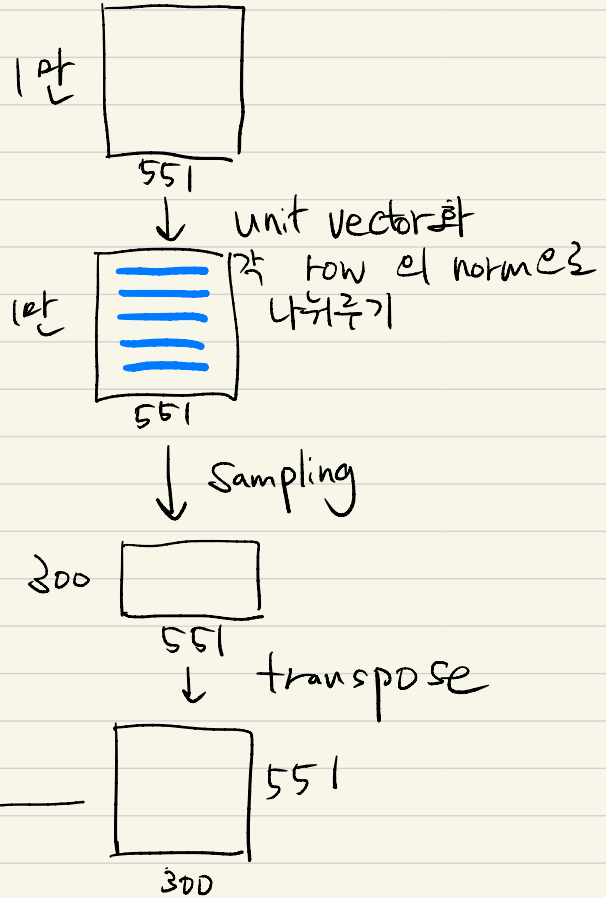 1만
551
unit vector화
각 row 의 norm으로
나눠주기
1만
551
Sampling
300
551
transpose
551
300